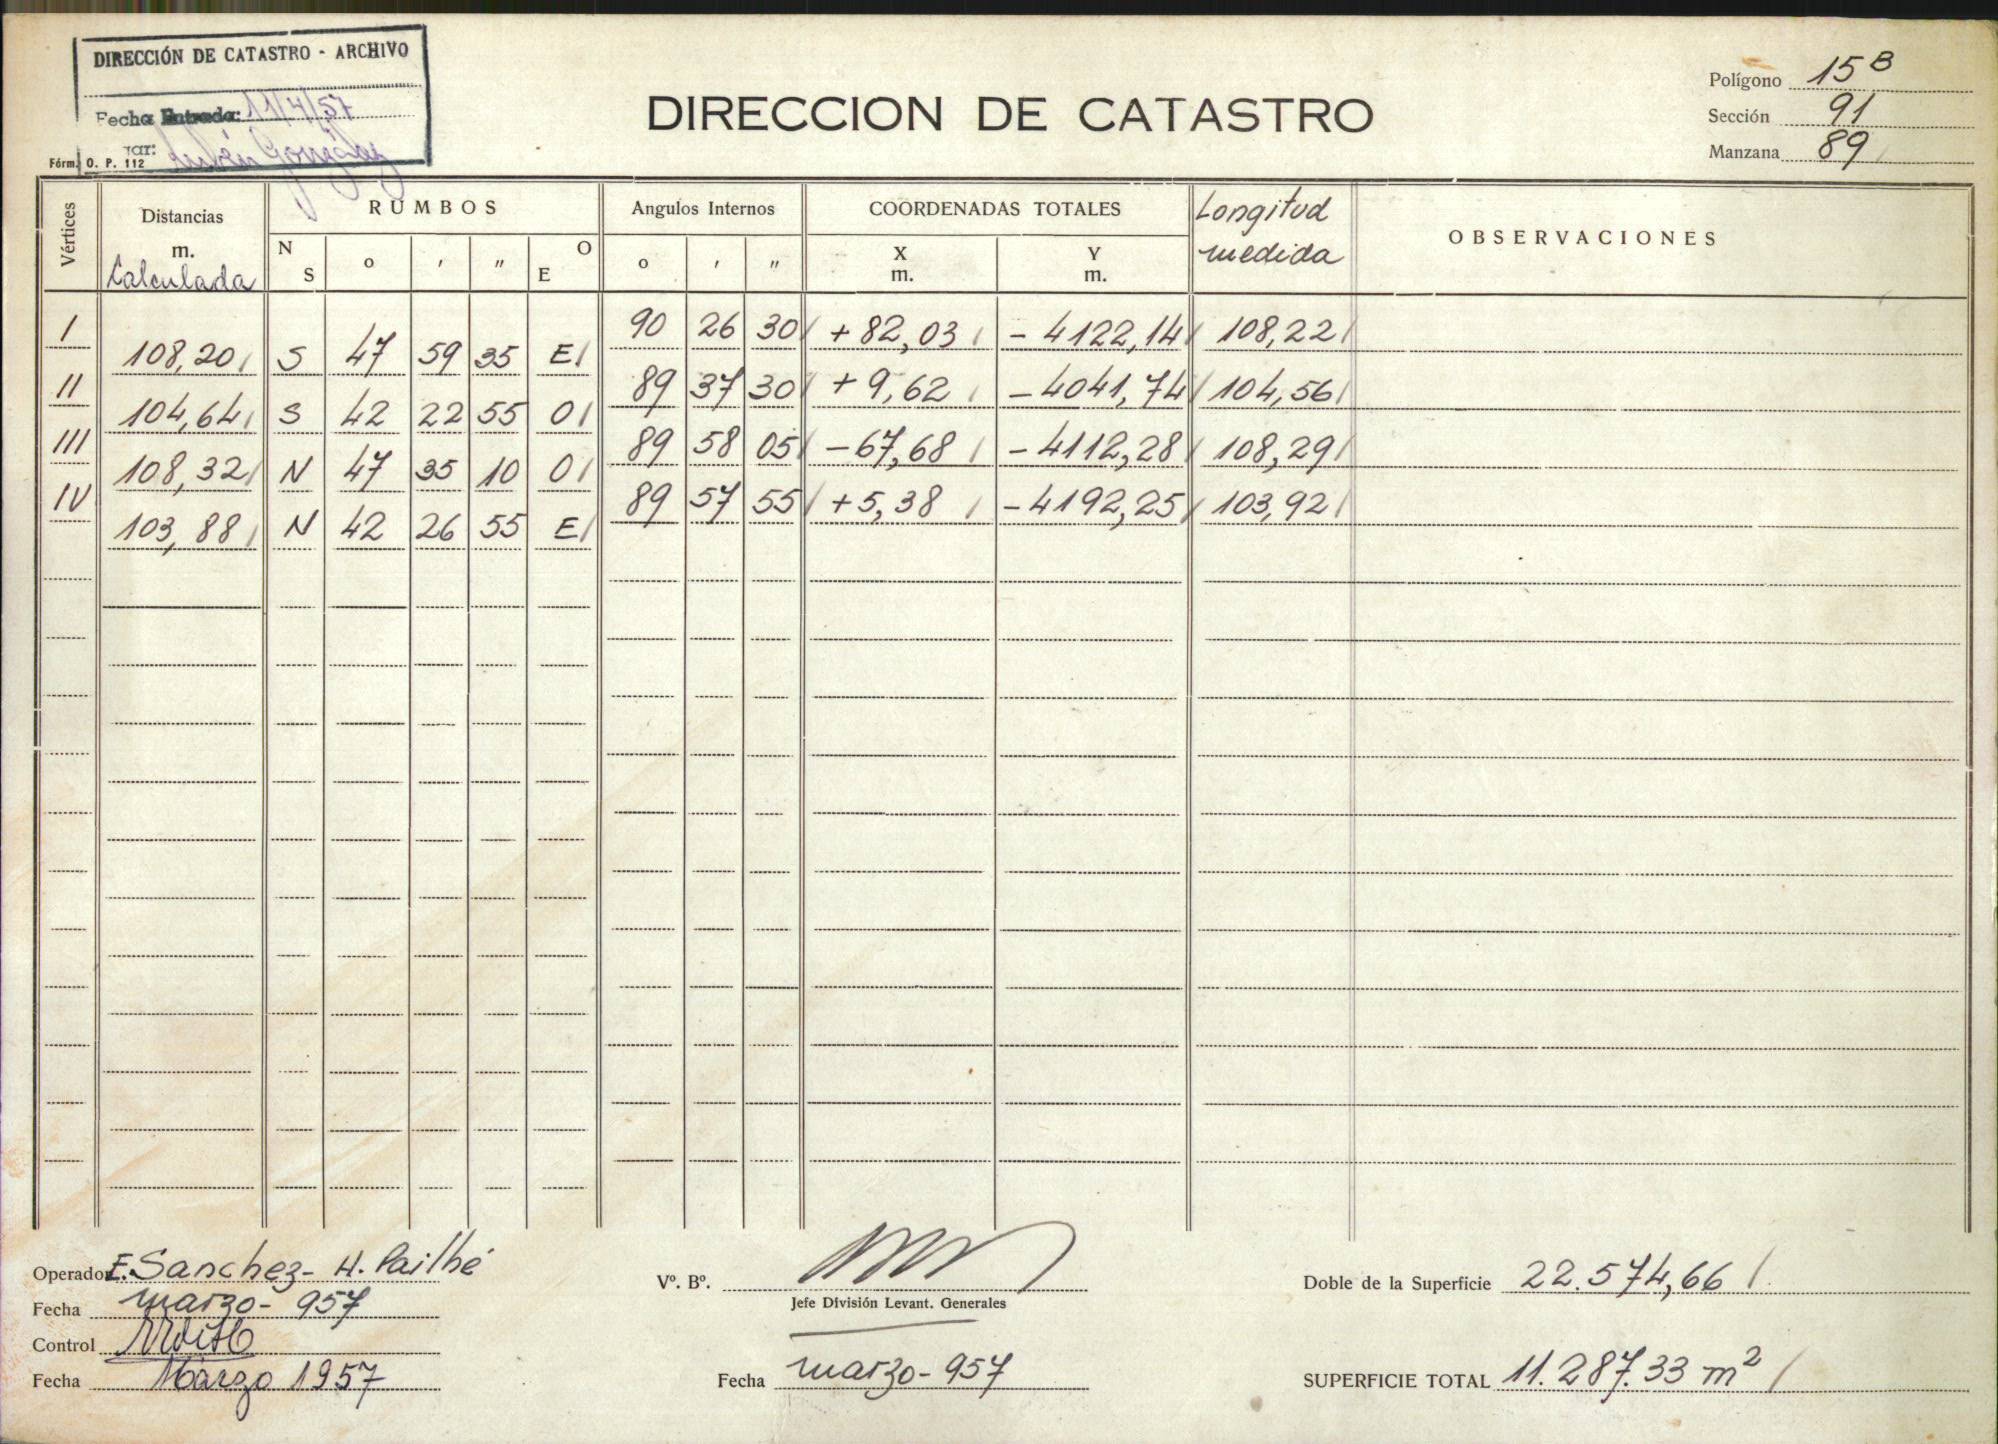 DIRECCIÓN DE CATASTRO - ARCHIVO
Fecha Entrada: 11/4/57
Rubén González
Fórm. O. P. 112
DIRECCION DE CATASTRO
Polígono 15 B
Sección 91
Manzana 89
Vértices Distancias m. Calculada RUMBOS N S o ′ ″ O E Angulos Internos o ′ ″ COORDENADAS TOTALES X m. Y m. Longitud medida OBSERVACIONES
I 90 26 30 + 82,03 - 4122,14 108,22
108,20 S 47 59 35 E
II 89 37 30 + 9,62 - 4041,74 104,56
104,64 S 42 22 55 O
III 89 58 05 - 67,68 - 4112,28 108,29
108,32 N 47 35 10 O
IV 89 57 55 + 5,38 - 4192,25 103,92
103,88 N 42 26 55 E
Operador E. Sanchez - H. Pailhé
Fecha marzo - 957
Control
Fecha Marzo 1957
Vº. Bº.
Jefe División Levant. Generales
Fecha marzo - 957
Doble de la Superficie 22.574,66
SUPERFICIE TOTAL 11.287.33 m²